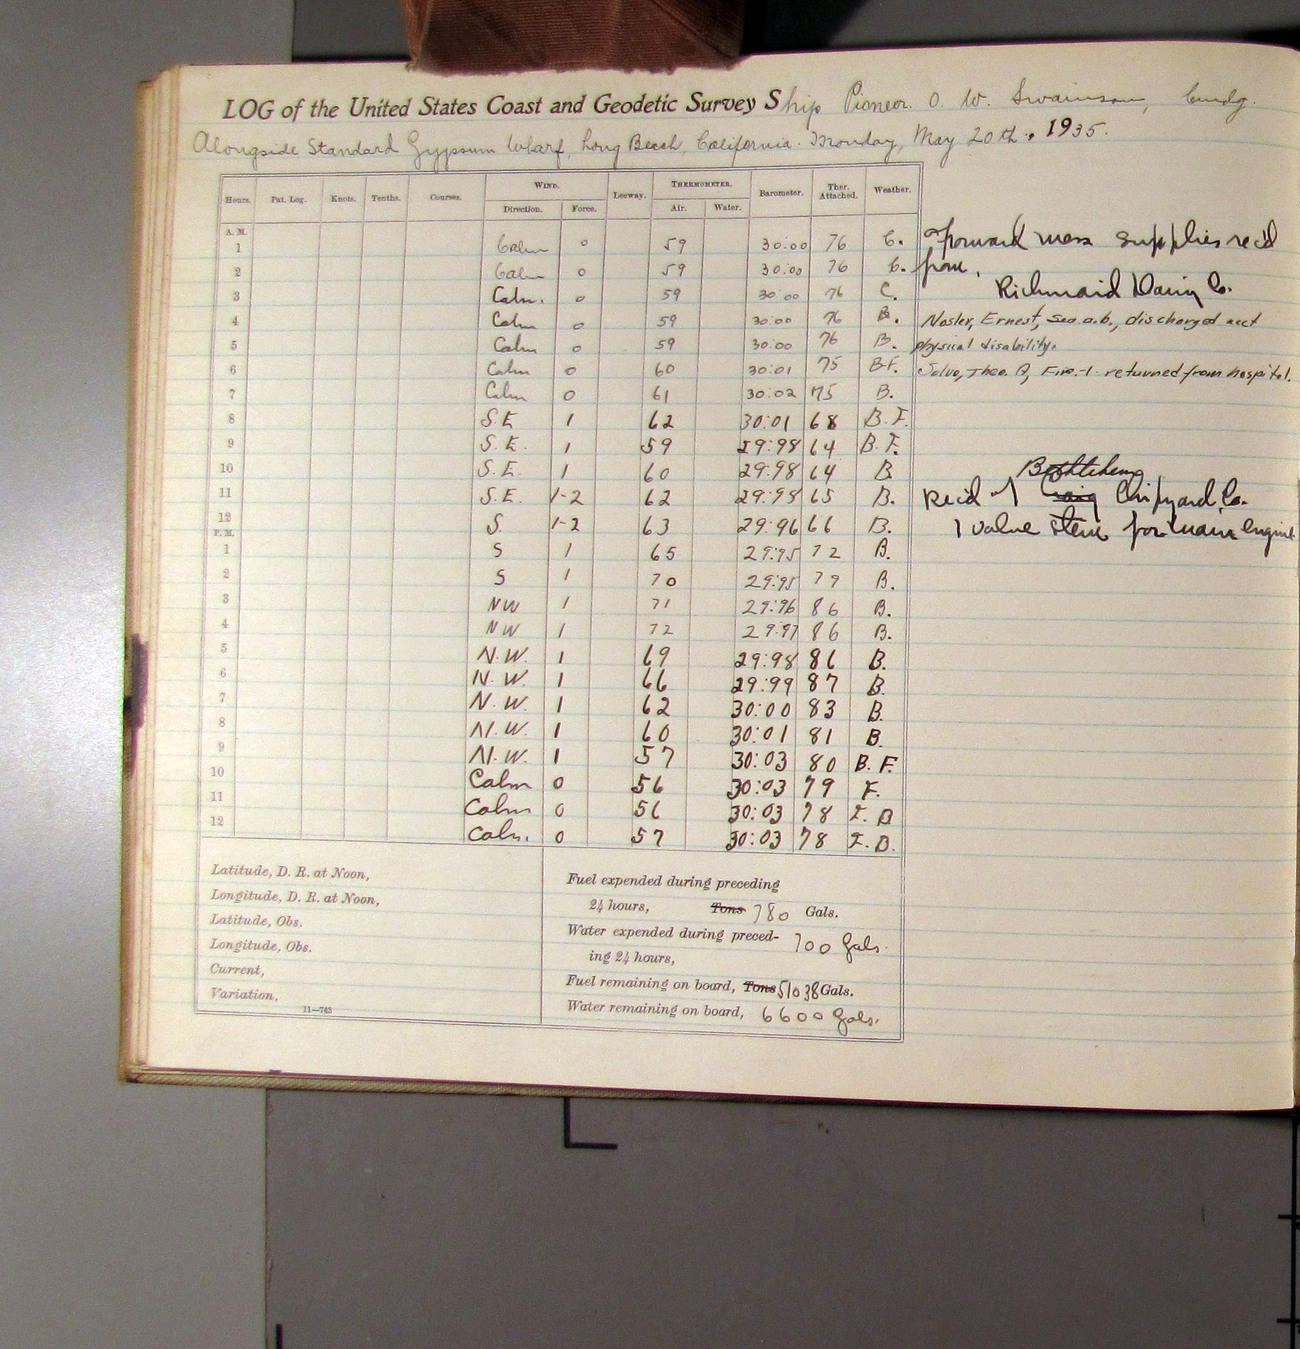 LOG of the United States Coast and Geodetic Survey Ship Pioneer. O. W. Swainson, Comdg.
Alongside Standard Gypsum Wharf, Long Beach, California. Monday, May 20th, 1935.
Hours. Pat. Log. Knots. Tenths. Courses. WIND. Leeway. THERMOMETER. Barometer. Ther. Attached. Weather.
Direction. Force. Air. Water.
A. M.
1 Calm 0 59 30:00 76 C.
2 Calm 0 59 30:00 76 C.
3 Calm. 0 59 30:00 76 C.
4 Calm 0 59 30:00 76 B.
5 Calm 0 59 30:00 76 B.
6 Calm 0 60 30:01 75 B.F.
7 Calm 0 61 30:02 75 B.
8 S.E 1 62 30:01 68 B.F.
9 S.E. 1 59 29:98 64 B.F.
10 S.E. 1 60 29:98 64 B
11 S.E. 1-2 62 29:98 65 B.
12 S. 1-2 63 29:96 66 B.
P. M.
1 S 1 65 29:95 72 B.
2 S 1 70 29:95 79 B.
3 NW 1 71 29:96 86 B.
4 NW 1 72 29:97 86 B.
5 N.W. 1 69 29:98 86 B.
6 N.W. 1 66 29:99 87 B.
7 N.W. 1 62 30:00 83 B.
8 N.W. 1 60 30:01 81 B.
9 N.W. 1 57 30:03 80 B.F.
10 Calm 0 56 30:03 79 F.
11 Calm 0 56 30:03 78 F. B
12 Calm. 0 57 30:03 78 F. B.
Forward mess supplies rec'd
from,
Richmaid Dairy Co.
Nosler, Ernest, Sea. a.b., discharged acct
physical disability.
Salvo, Theo. A, Fire.-1- returned from hospital.
Bethlehem
Rec'd of Craig Shipyard Co.
1 valve stem for main engine
Latitude, D. R. at Noon,
Longitude, D. R. at Noon,
Latitude, Obs.
Longitude, Obs.
Current,
Variation,
11—743
Fuel expended during preceding
24 hours, Tons 780 Gals.
Water expended during preced-
ing 24 hours, 700 Gals.
Fuel remaining on board, Tons 51038 Gals.
Water remaining on board, 6600 Gals.